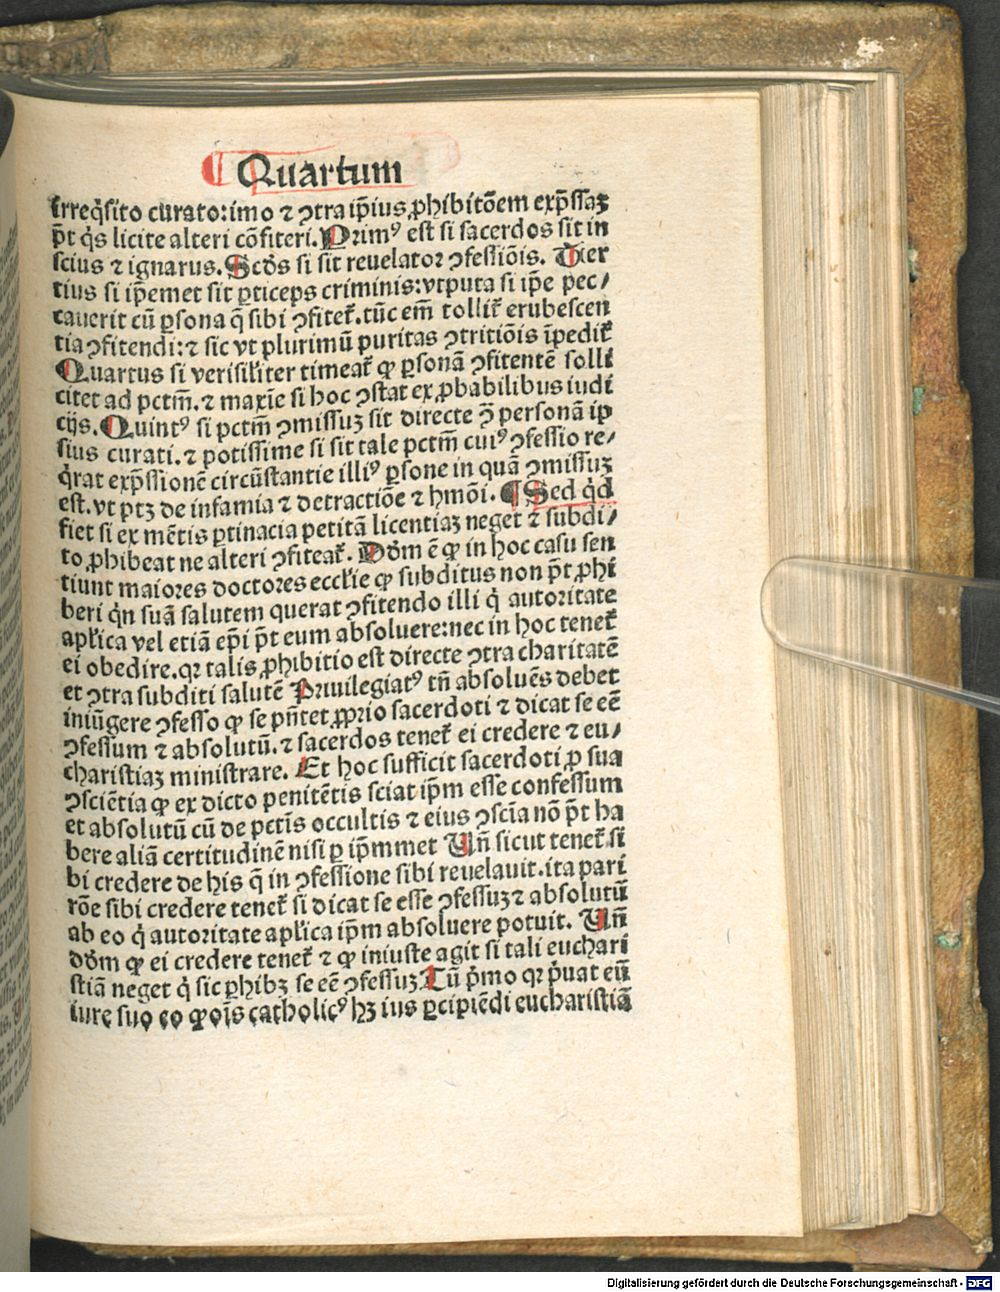 Quartum
irreq̇sito curato: imo ⁊ ↄtra ip̄ius ꝓhibitōem exp̄ssaꝫ
p̄t q̇s licite alteri cōfiteri. Primꝰ est si sacerdos sit in
scius ⁊ ignarus. Scđs si sit reuelator ↄfessiōis. Tier
tius si ip̄emet sit ꝑticeps criminis: vtputa si ip̄e pec/
cauerit cū ꝑsona q̄ sibi ↄfitet᷑. tūc em̄ tollit᷑ erubescen
tia ↄfitendi: ⁊ sic vt plurimū puritas ↄtritiōis īpedit᷑
Quartus si verisilīter timeat᷑ ꝙ ꝑsonā ↄfitentē solli
citet ad pctm̄. ⁊ maxīe si hoc ↄstat ex ꝓbabilibus iudi
cijs. Quintꝰ si pctm̄ ↄmissuꝫ sit directe ↄ̄ personā ip
sius curati. ⁊ potissime si sit tale pctm̄ cuiꝰ ↄfessio re/
q̇rat exp̄ssionē circūstantie illiꝰ ꝑsone in quā ↄmissuꝫ
est. vt ptꝫ de infamia ⁊ detractiōe ⁊ hmōi. ¶ Sed q̇d
fiet si ex mētis ꝑtinacia petitā licentiaꝫ neget ⁊ subdi/
to ꝓhibeat ne alteri ↄfiteat᷑. Dōm ē ꝙ in hoc casu sen
tiunt maiores doctores eccłie ꝙ subditus non p̄t ꝓhi
beri q̇n suā salutem querat ↄfitendo illi q̇ autoritate
apłica vel etiā ep̄i p̄t eum absoluere: nec in hoc tenet᷑
ei obedire. qꝛ talis ꝓhibitio est directe ↄtra charitatē
et ↄtra subditi salutē Priuilegiatꝰ tn̄ absoluēs debet
iniūgere ↄfesso ꝙ se pn̄tet ꝓprio sacerdoti ⁊ dicat se eē
ↄfessum ⁊ absolutū. ⁊ sacerdos tenet᷑ ei credere ⁊ eu/
charistiaꝫ ministrare. Et hoc sufficit sacerdoti ꝓ sua
ↄsciētia ꝙ ex dicto penitētis sciat ip̄m esse confessum
et absolutū cū de pctīs occultis ⁊ eius ↄscīa nō p̄t ha
bere aliā certitudinē nisi ꝑ ip̄mmet Un̄ sicut tenet᷑ si
bi credere de his q̄ in ↄfessione sibi reuelauit. ita pari
rōe sibi credere tenet᷑ si dicat se esse ↄfessuꝫ ⁊ absolutū
ab eo q̇ autoritate apłica ip̄m absoluere potuit. Un̄
dōm ꝙ ei credere tenet᷑ ⁊ ꝙ iniuste agit si tali euchari
stiā neget q̇ sic ꝑhibꝫ se eē ↄfessuꝫ Tū p̄mo qꝛ p̄uat eū
iure suo eo ꝙ oīs catholicꝰ hꝫ ius ꝑcipiēdi eucharistiā
Digitalisierung gefördert durch die Deutsche Forschungsgemeinschaft - DFG